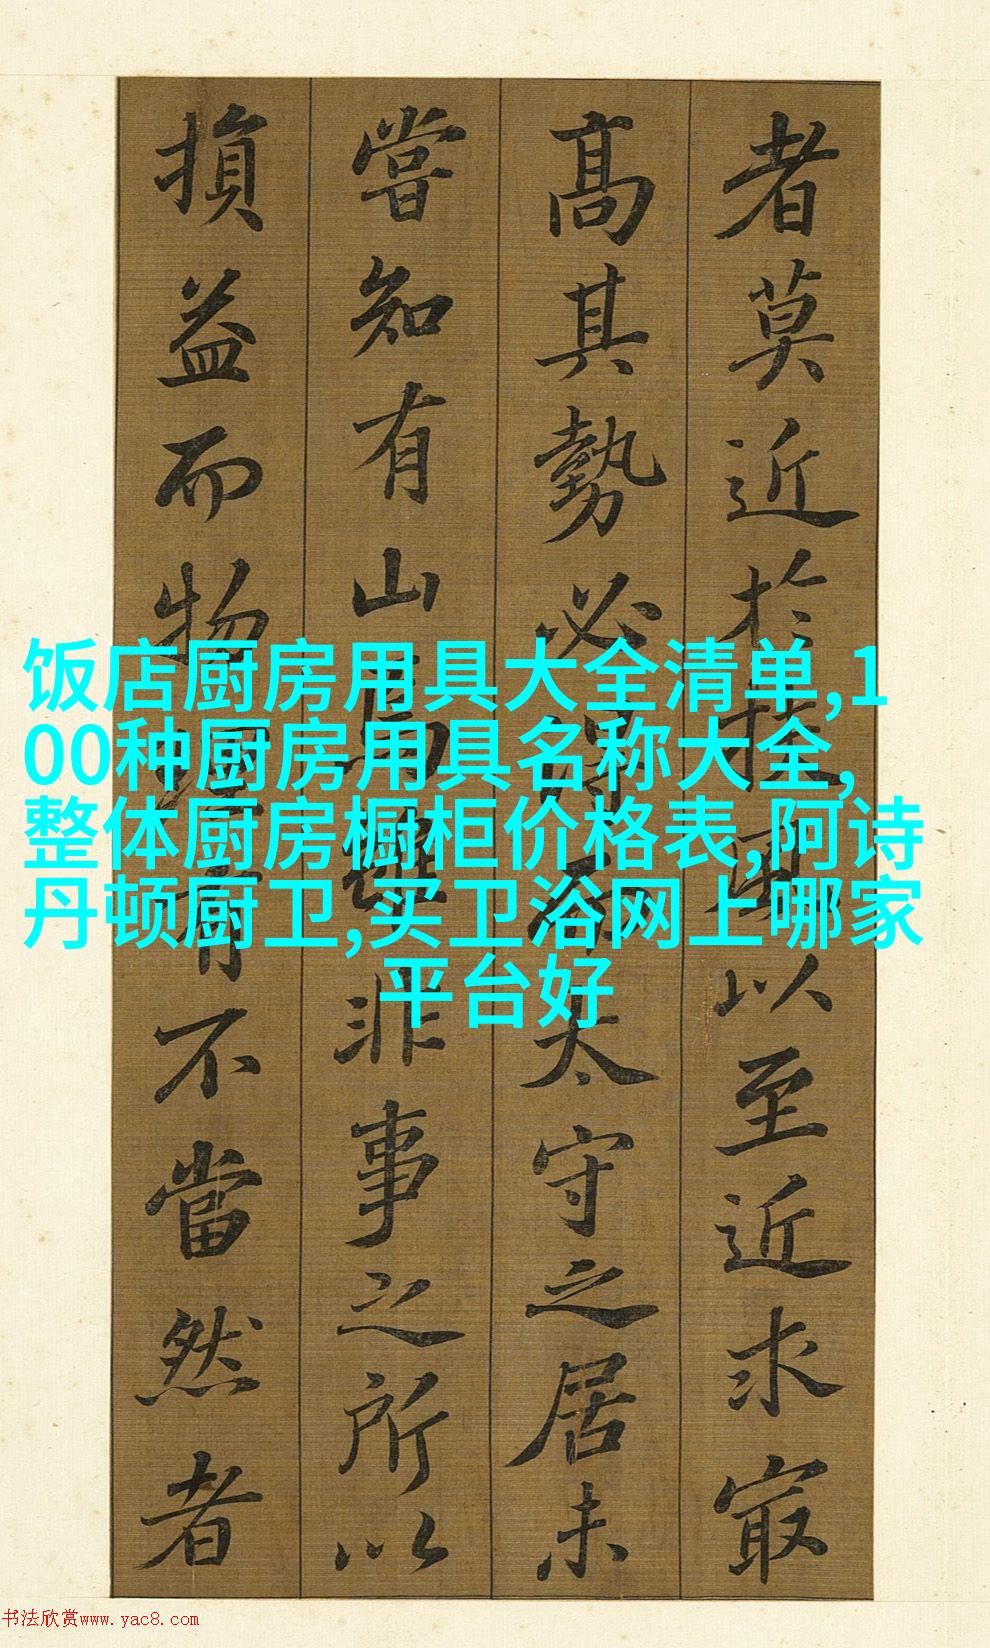 饭店厨房用具大全清单,1
00种厨房用具名称大全,
整体厨房橱柜价格表,阿诗
丹顿厨卫,买卫浴网上哪家
平台好
者莫近於扶風以至近求㝡
髙其勢必得而太守之居未
嘗知有山焉雖非事之所以
損益而物理有不當然者
书法欣赏www.yac8.com